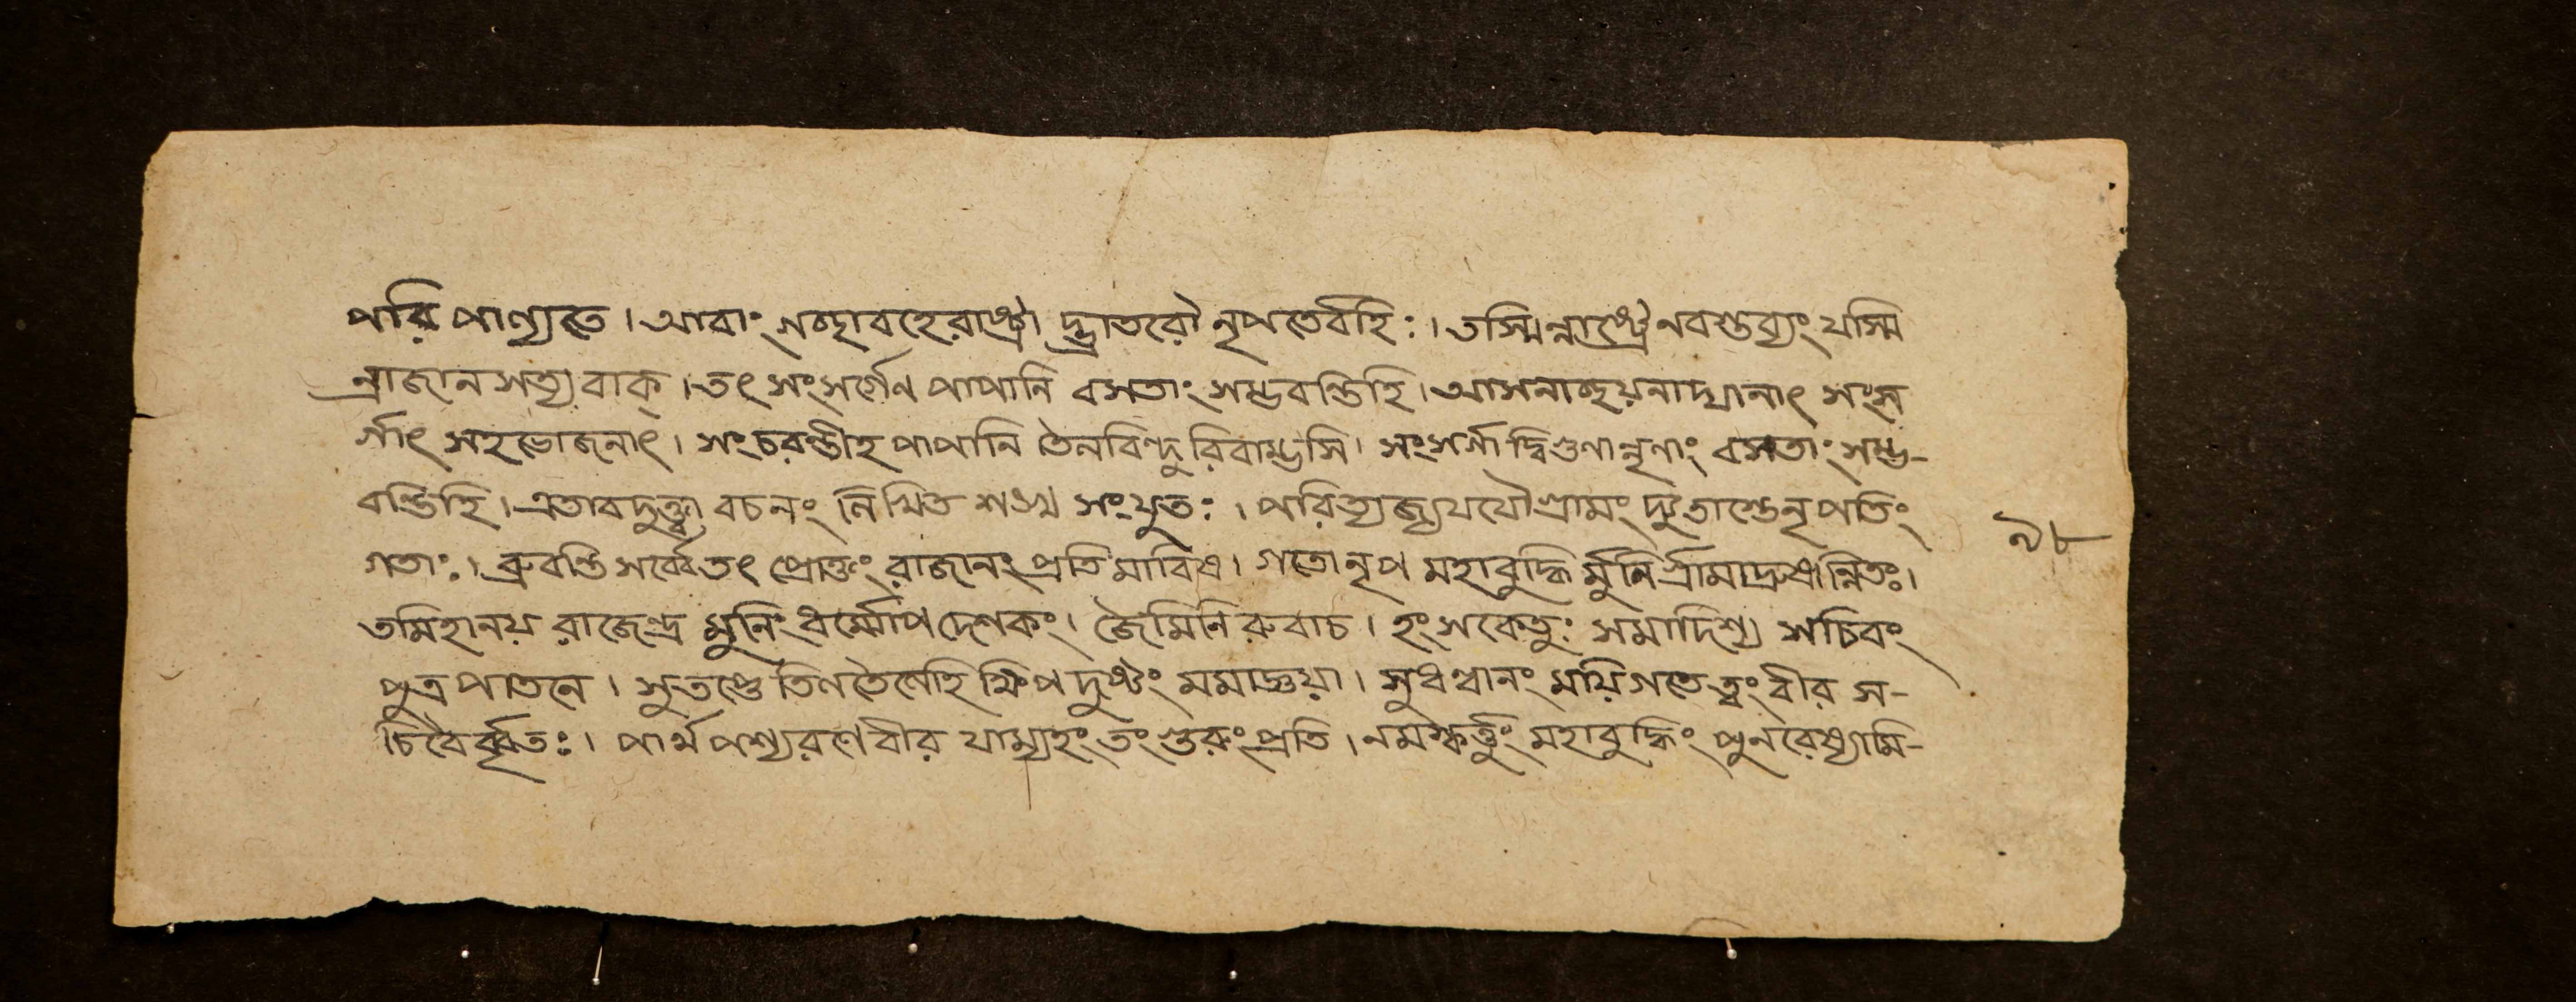 পরি পাণ্যতে। আবাং গচ্ছাবহেরাষ্ট্রা দ্ভ্রাতরৌ নৃপতের্বহিঃ। তস্মিন্নাষ্ট্রে নবস্তব্যং যস্মি
ন্রাজান সত্যবাক্। তৎ সংসর্গেণ পাপানি বসতাং সম্ভবন্তিহি। আসনাচ্ছয়নাদ্যানাৎ সংস
র্গাৎ সহভোজনাৎ। সংচরন্তীহ পাপানি তৈলবিন্দু রিবাম্ভসি। সংসর্গা দ্বিগুণান্নৃণাং বসতাং সম্ভ-
বন্তিহি। এতাবদুক্ত্বা বচনং লিখিত শঙ্খ সংযুতঃ। পরিত্যজ্য যযৌ গ্রামং দূতাস্তে নৃপতিং
গতাঃ। ব্রুবন্তি সর্ব্বে তৎ প্রোক্তং রাজানং প্রতি মারিষ। গতো নৃপ মহাবুদ্ধি র্মুনি র্গ্রামাদ্রুষান্বিতঃ।
তমিহানয় রাজেন্দ্র মুনিং ধর্ম্মোপদেশকং। জৈমিনি রুবাচ। হংসকেতুঃ সমাদিশ্য সচিবং
পুত্র পাতনে। সুতপ্তে তিল তৈলেহি ক্ষিপ দুষ্টং মমাজ্ঞয়া। সুধন্বানং ময়ি গতে ত্বং বীর স-
চিবৈর্ব্বৃতঃ। পার্থ পশ্য রণে বীর যাম্যহং তং গুরুং প্রতি। নমস্কর্ত্তুং মহাবুদ্ধিং পুনরেষ্যামি-
৯৮